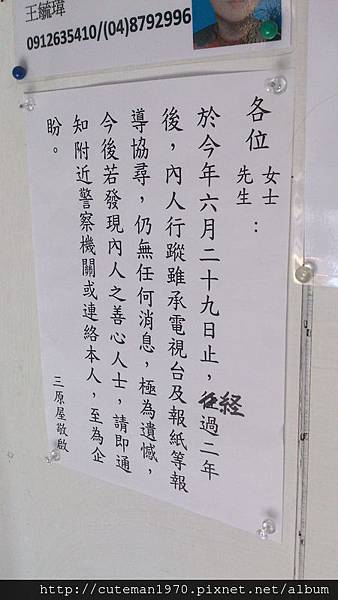 王毓瑋
0912635410/(04)8792996
各位女士先生：
於今年六月二十九日止，經過二年
後，內人行蹤雖承電視台及報紙等報
導協尋，仍無任何消息，極為遺憾，
今後若發現內人之善心人士，請即通
知附近警察機關或連絡本人，至為企
盼。
三原屋敬啟
http://cuteman1970.pixnet.net/album